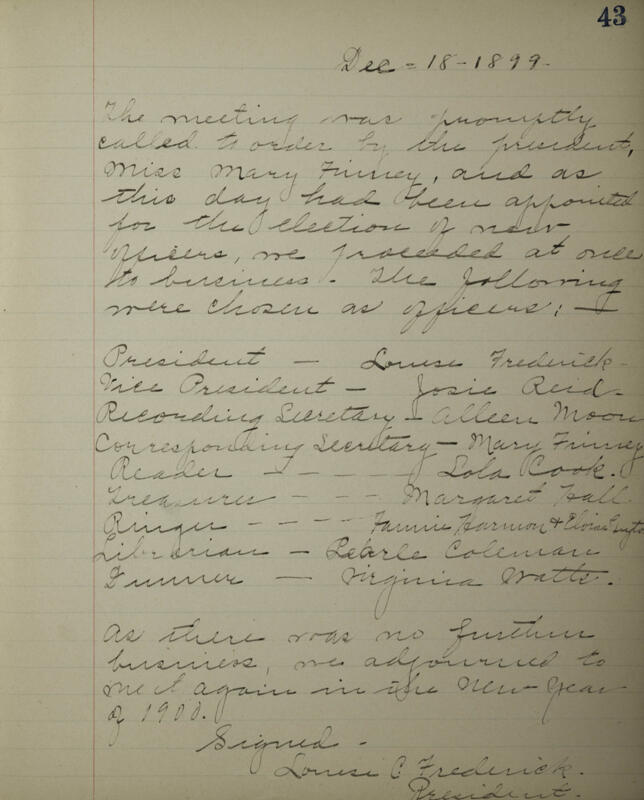 43
Dec - 18 - 1899 -
The meeting was promptly
called to order by the president,
Miss Mary Finney, and as
this day had been appointed
for the election of new
officers, we proceeded at once
to business. The following
were chosen as officers: —
President — Louise Frederick -
Vice President — Josie Reid -
Recording Secretary — Alleen Moon
Corresponding Secretary — Mary Finney
Reader - - - Lola Cook.
Treasurer - - - Margaret Hall
Ringer - - - - Fannie Harmon & Eloise
Librarian — Pearle Coleman
Dunner — Virginia Watts.
As there was no further
business, we adjourned to
meet again in the New Year
of 1900.
Signed -
Louise C. Frederick.
President.